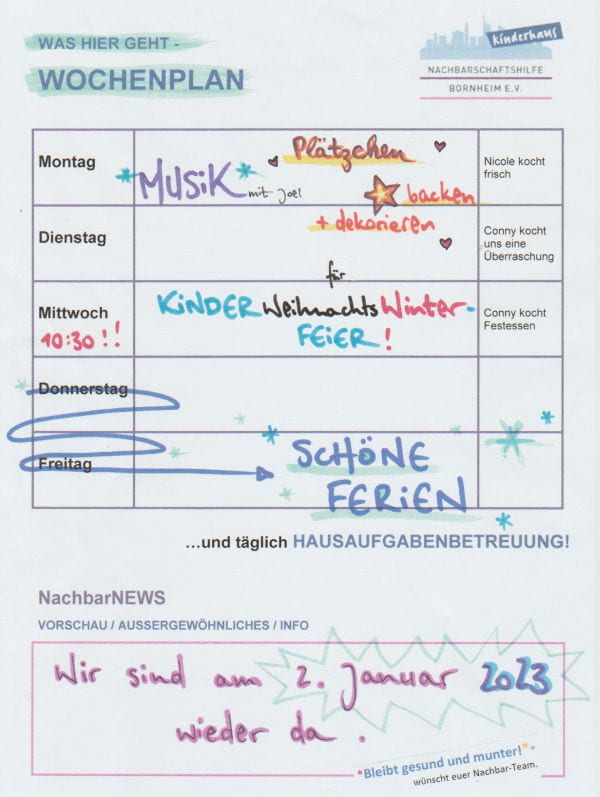 WAS HIER GEHT -
WOCHENPLAN
kinderhaus
NACHBARSCHAFTSHILFE
BORNHEIM E.V.
Montag
MUSiK mit Joel
Plätzchen
backen
Nicole kocht
frisch
Dienstag
+ dekorieren
für
Conny kocht
uns eine
Überraschung
Mittwoch
10:30 !!
KiNDER Weihnachts Winter-
FEiER !
Conny kocht
Festessen
Donnerstag
Freitag
SCHÖNE
FERiEN
...und täglich HAUSAUFGABENBETREUUNG!
NachbarNEWS
VORSCHAU / AUSSERGEWÖHNLICHES / INFO
Wir sind am 2. Januar 2023
wieder da .
*Bleibt gesund und munter!*
wünscht euer Nachbar-Team.